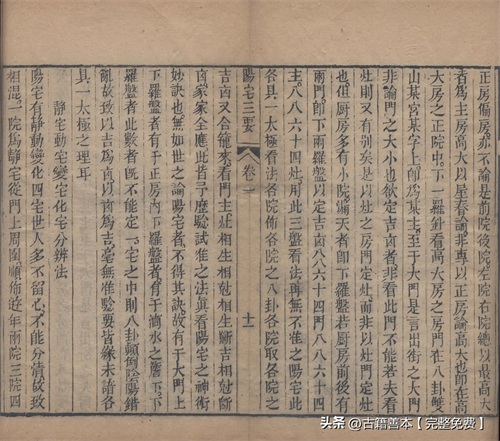 正房偏房亦不論前院後院正院左院右院總以最高大
者爲主房高大以星看論非專以正房論高大也卽在高
大房之正院中下一羅針看高大房之房門在八卦雙
山某宮某字上卽爲某主至于大門是言出街之大門
非論門之大小也欲定吉凶者八八六十四門八八六十四
灶則又有別矣是以灶之房門定灶而非以灶門定灶
也但厨房多有小院偏天者卽下羅盤若厨房前後有
兩門卽下兩羅盤以定吉凶此三盤看法再無不驗至
主八八六十四灶用此三盤看法各院佈各院之八卦各院取各院之
各具一太極看法各院佈各院之八卦各院取各院之
陽宅三要
卷一
十一
吉凶又合籠來看門主灶相生相尅斷吉
凶家家全應此皆予歷驗試准之法眞看陽宅之神術
妙訣也無如世之論陽宅者不得其訣故有于大門上
下羅盤者有于正房內下羅盤者有于滴水之簷下下
羅盤者此數者既不能定一宅之中則八卦顛倒陰陽錯
亂故致以吉爲凶以凶爲吉毫無准驗要皆緣未諳各
具一太極之理耳
靜宅動宅變宅化宅分辨法
陽宅有靜動變化四宅世人多不留心不能分清故致
相混一院爲靜宅從門上周圍順佈遊年兩院三院四
头条@古籍善本【完整免费】